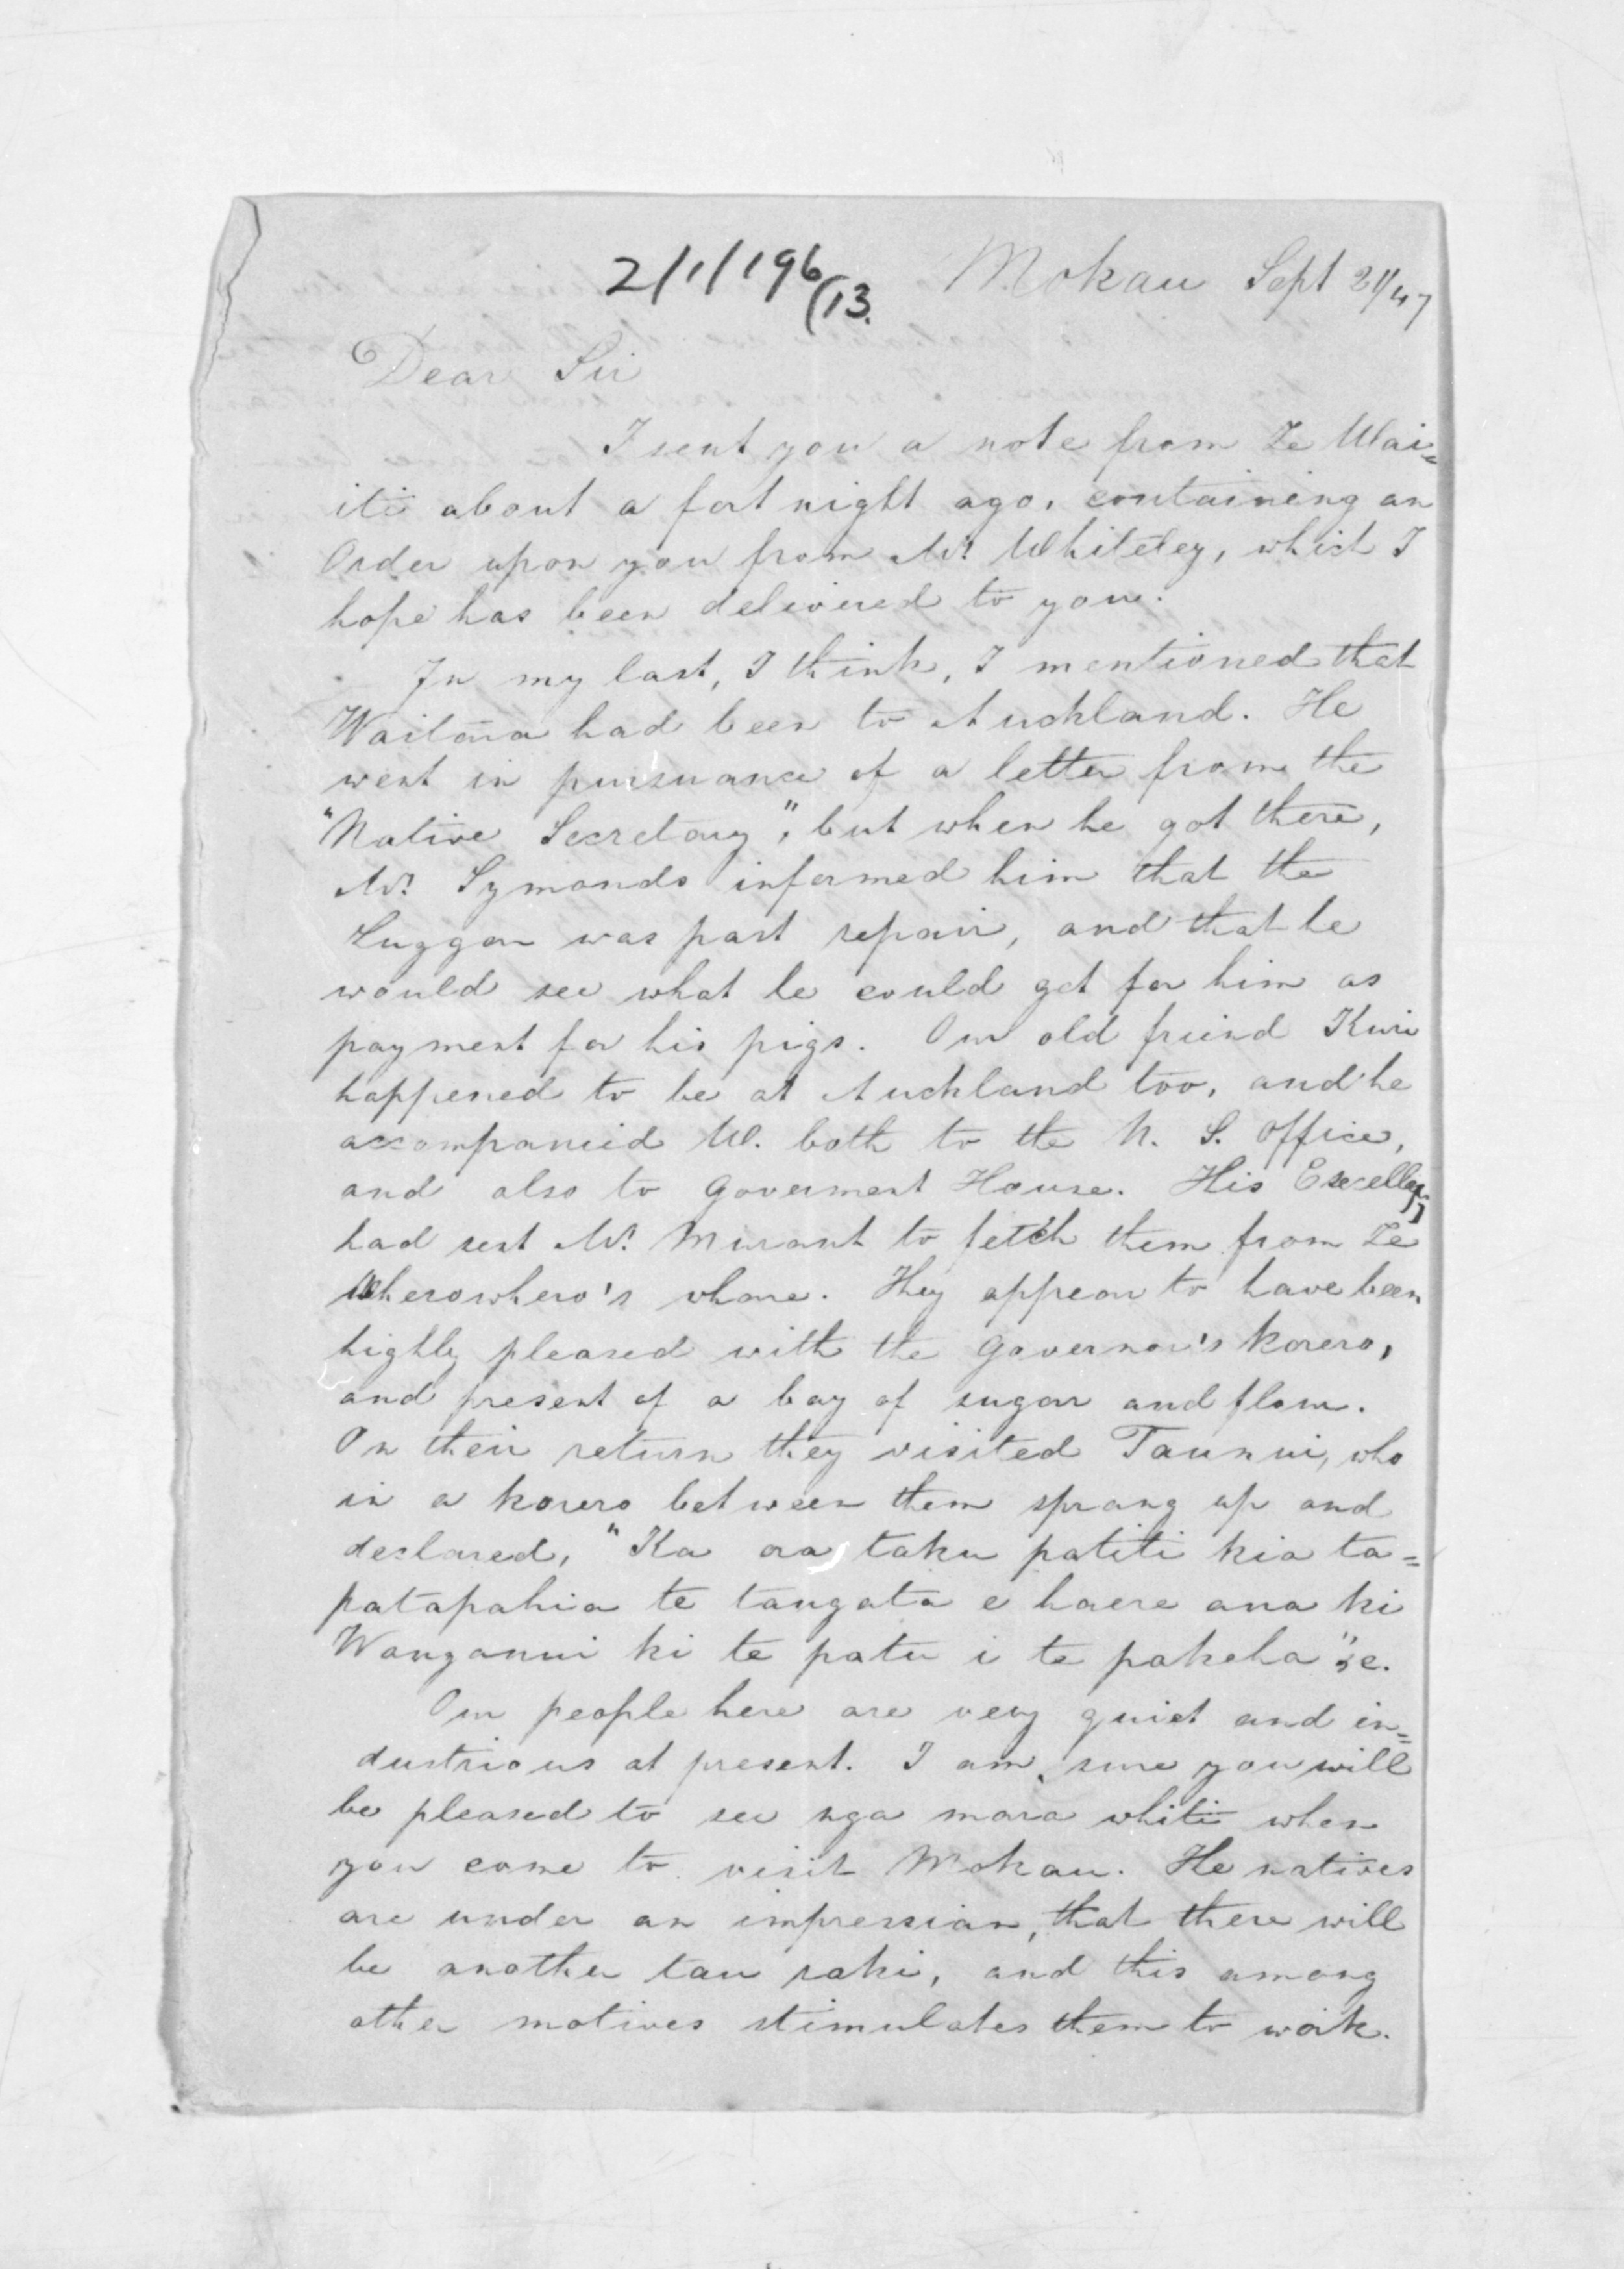 2/1/196/13. Mokau Sept 21/47
Dear Sir
I sent you a note from Te Wai=
iti about a fortnight ago, containing an
Order upon you from Mr. Whiteley, which I
hope has been delivered to you.
In my last, I think, I mentioned that
Waitara had been to Auckland. He
went in pursuance of a letter from the
"Native Secretary", but when he got there,
Mr. Symonds informed him that the
Luggar was past repair, and that he
would see what he could get for him as
payment for his pigs. Our old friend Kuri
happened to be at Auckland too, and he
accompanied W. both to the N. S. Office,
and also to Goverment House. His Excellency
had sent Mr. to fetch them from Te
Wherowhero's whare. They appear to have been
highly pleased with the Governor's korero,
and present of a bag of sugar and flour.
On their return they visited Taunui, who
in a korero between them sprang up and
declared, "Ka ora taku patiti kia ta=
patapahia te tangata e haere ana ki
Wanganui ki te patu i te pakeha" &c.
Our people here are very quiet and in=
dustrious at present. I am sure you will
be pleased to see nga mara whiti when
you come to visit Mokau. The natives
are under an impression, that there will
be another tau raki, and this among
other motives stimulates them to work.